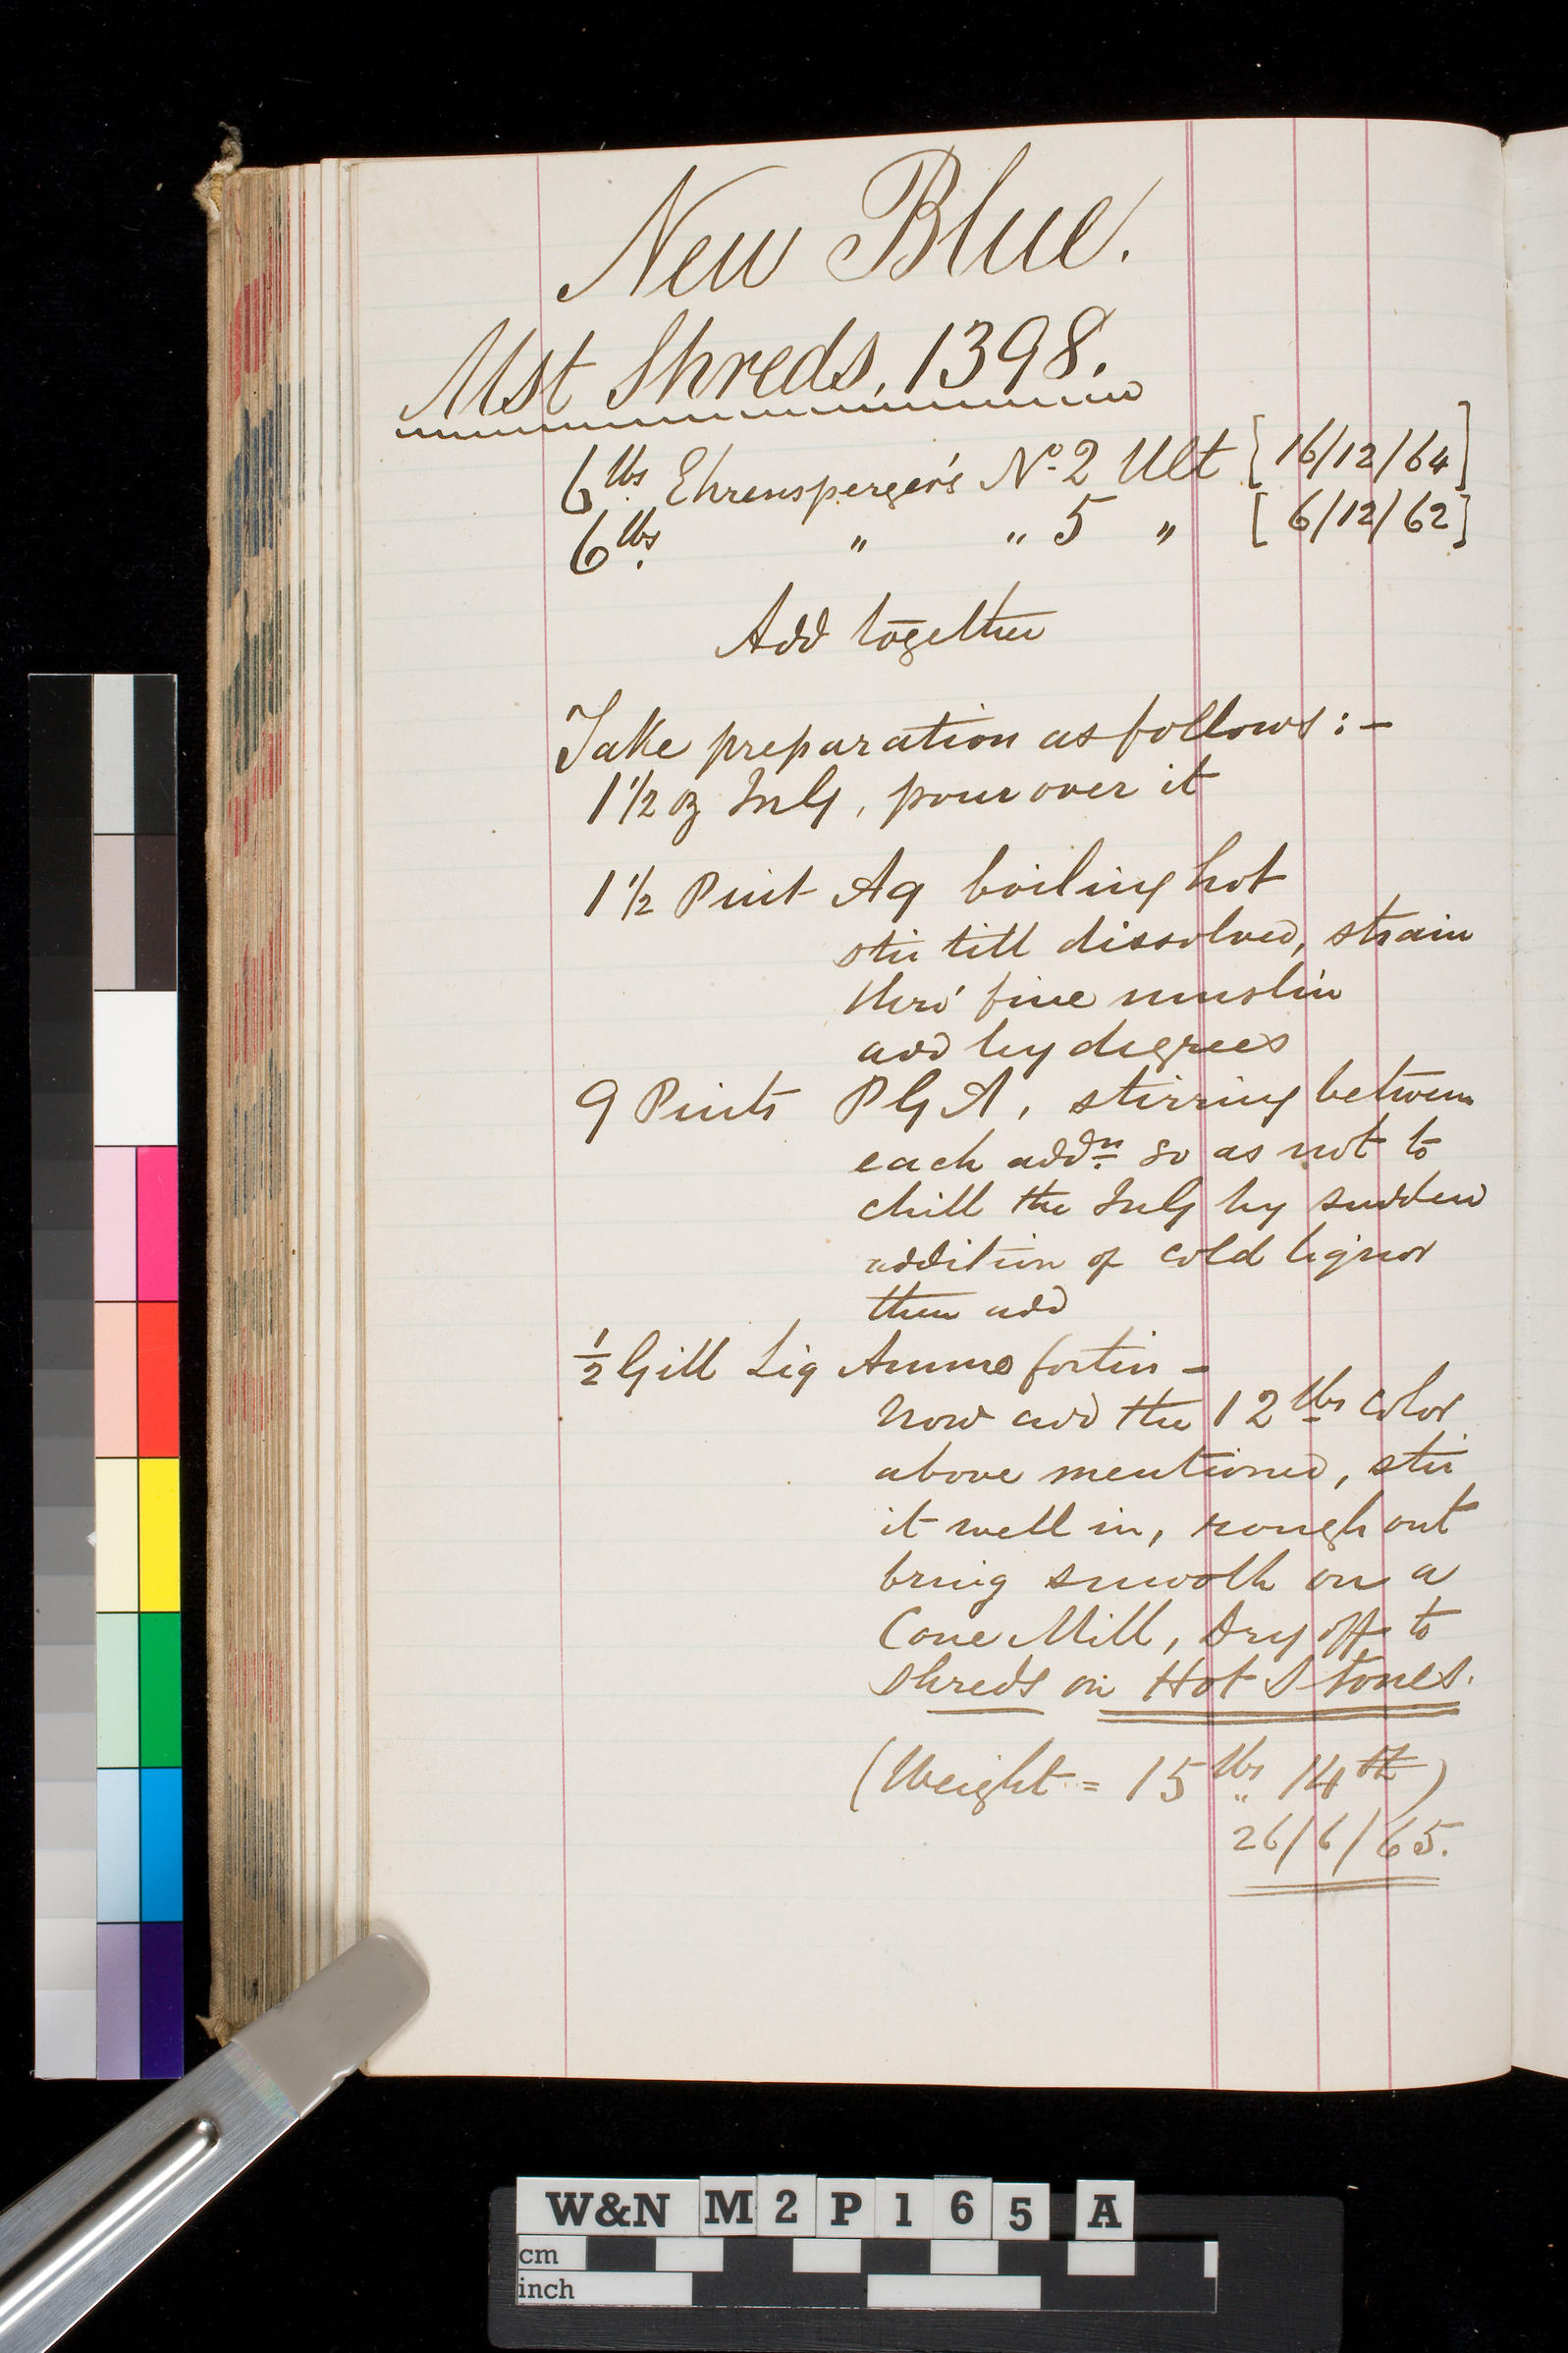 New Blue.
Mst Shreds. 1398.
6 lbs. Ehrensperger's No. 2 Ult [16/12/64]
6 lbs. " " 5 " [6/12/62]
Add together
Take preparation as follows:-
1 1/2 oz InG, pour over it
1 1/2 Pint Aq boiling hot
stir till dissolved, strain
thro' fine muslin
add by degrees
9 Pints PGA, stirring between
each addn. so as not to
chill the InG by sudden
addition of cold liquor
then add
1/2 Gill Liq Ammo fortis -
Now add the 12 lbs color
above mentioned, stir
it well in, rough out
bring smooth on a
Cone Mill, Dry off to
shreds on Hot Stones.
(Weight = 15 lbs " 14 )
26/6/65.
W&N M2P165 A
cm
inch